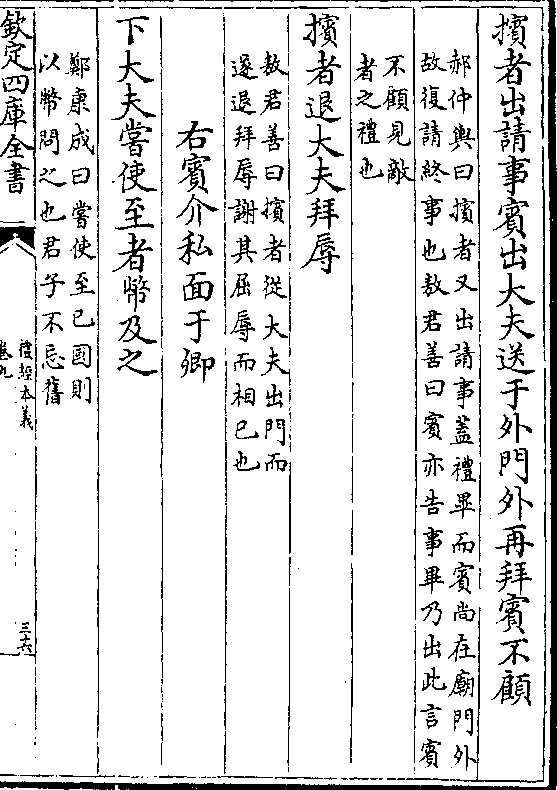 擯者出請事賓出大夫送于外門外再拜賓不顧
郝仲輿曰擯者又出請事蓋禮畢而賓尚在廟門外
故復請終事也敖君善曰賓亦告事畢乃出此言賓
不顧見敵
者之禮也
擯者退大夫拜辱
敖君善曰擯者從大夫出門而
遂退拜辱謝其屈辱而相已也
右賓介私面于卿
下大夫嘗使至者幣及之
鄭康成曰嘗使至已國則
以幣問之也君子不忘舊
欽定四庫全書
禮經本義
卷九
三十六